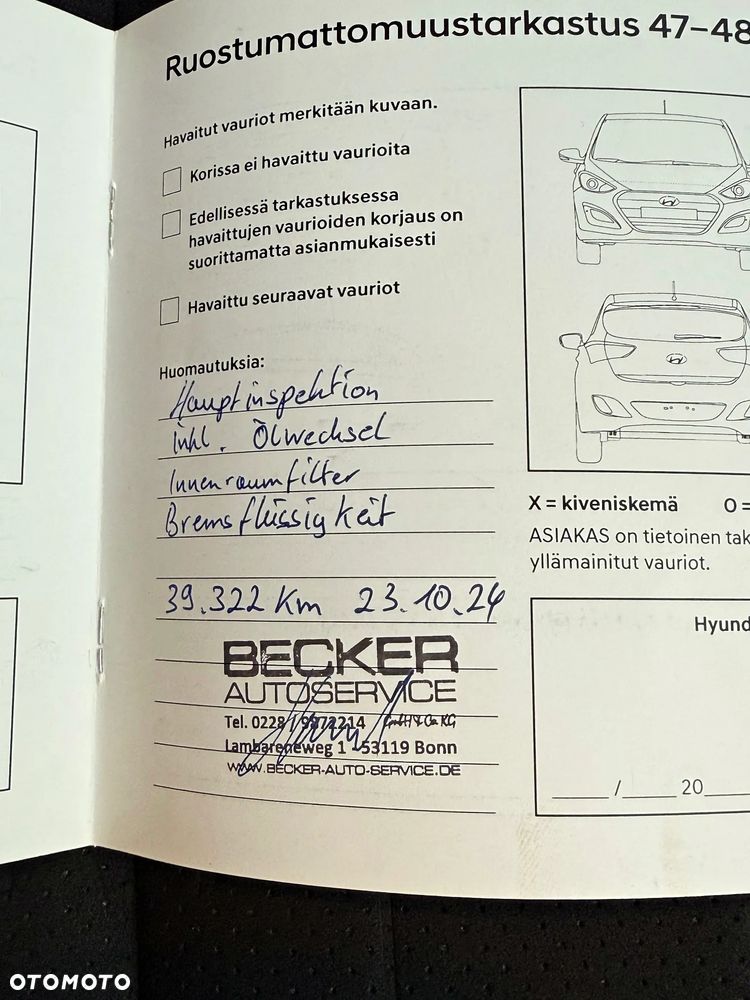 Ruostumattomuustarkastus 47–48
Havaitut vauriot merkitään kuvaan.
Korissa ei havaittu vaurioita
Edellisessä tarkastuksessa
havaittujen vaurioiden korjaus on
suorittamatta asianmukaisesti
Havaittu seuraavat vauriot
Huomautuksia:
Hauptinspektion
inkl. Ölwechsel
Innenraumfilter
Bremsflüssigkeit
39.322 Km 23.10.24
BECKER
AUTOSERVICE
Tel. 0228 / 9872214 GmbH & Co KG
Lambareneweg 1 - 53119 Bonn
WWW.BECKER-AUTO-SERVICE.DE
X = kiveniskemä O =
ASIAKAS on tietoinen tak
yllämainitut vauriot.
Hyund
____/____ 20____
OTOMOTO